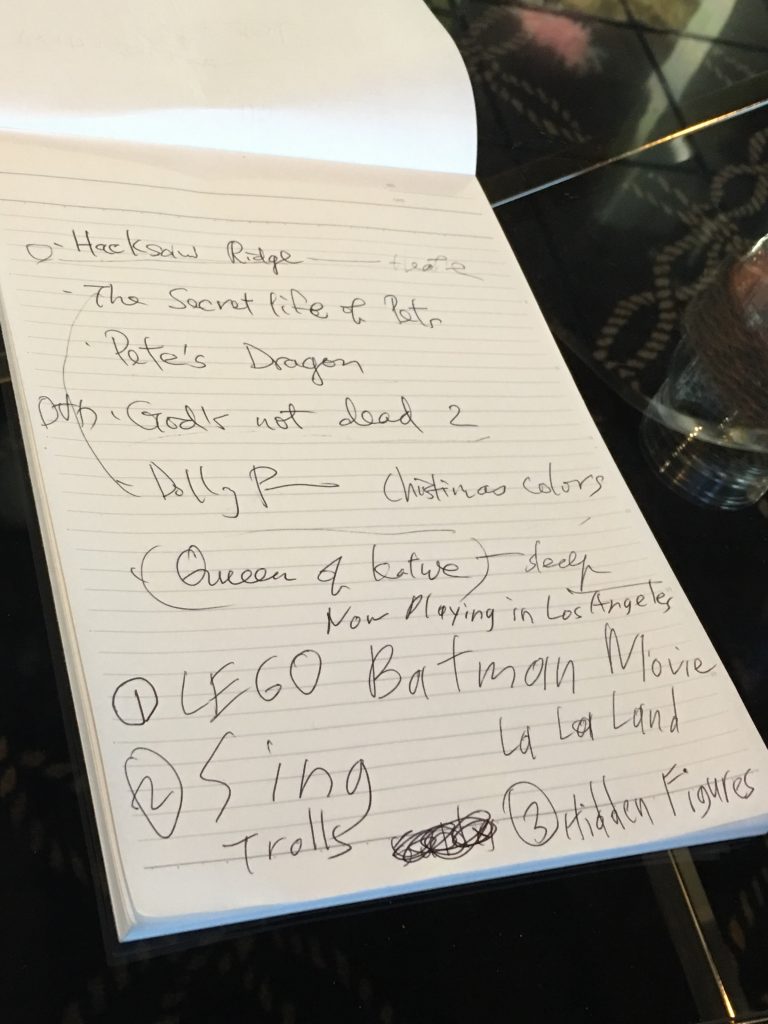 Hacksaw Ridge
- The Secret life of Pets
· Pete's Dragon
· God's not dead 2
- Dolly P Christmas colors
(Queen of katwe)
Now Playing in Los Angeles
① LEGO Batman Movie
La La Land
② Sing
Trolls
③ Hidden Figures